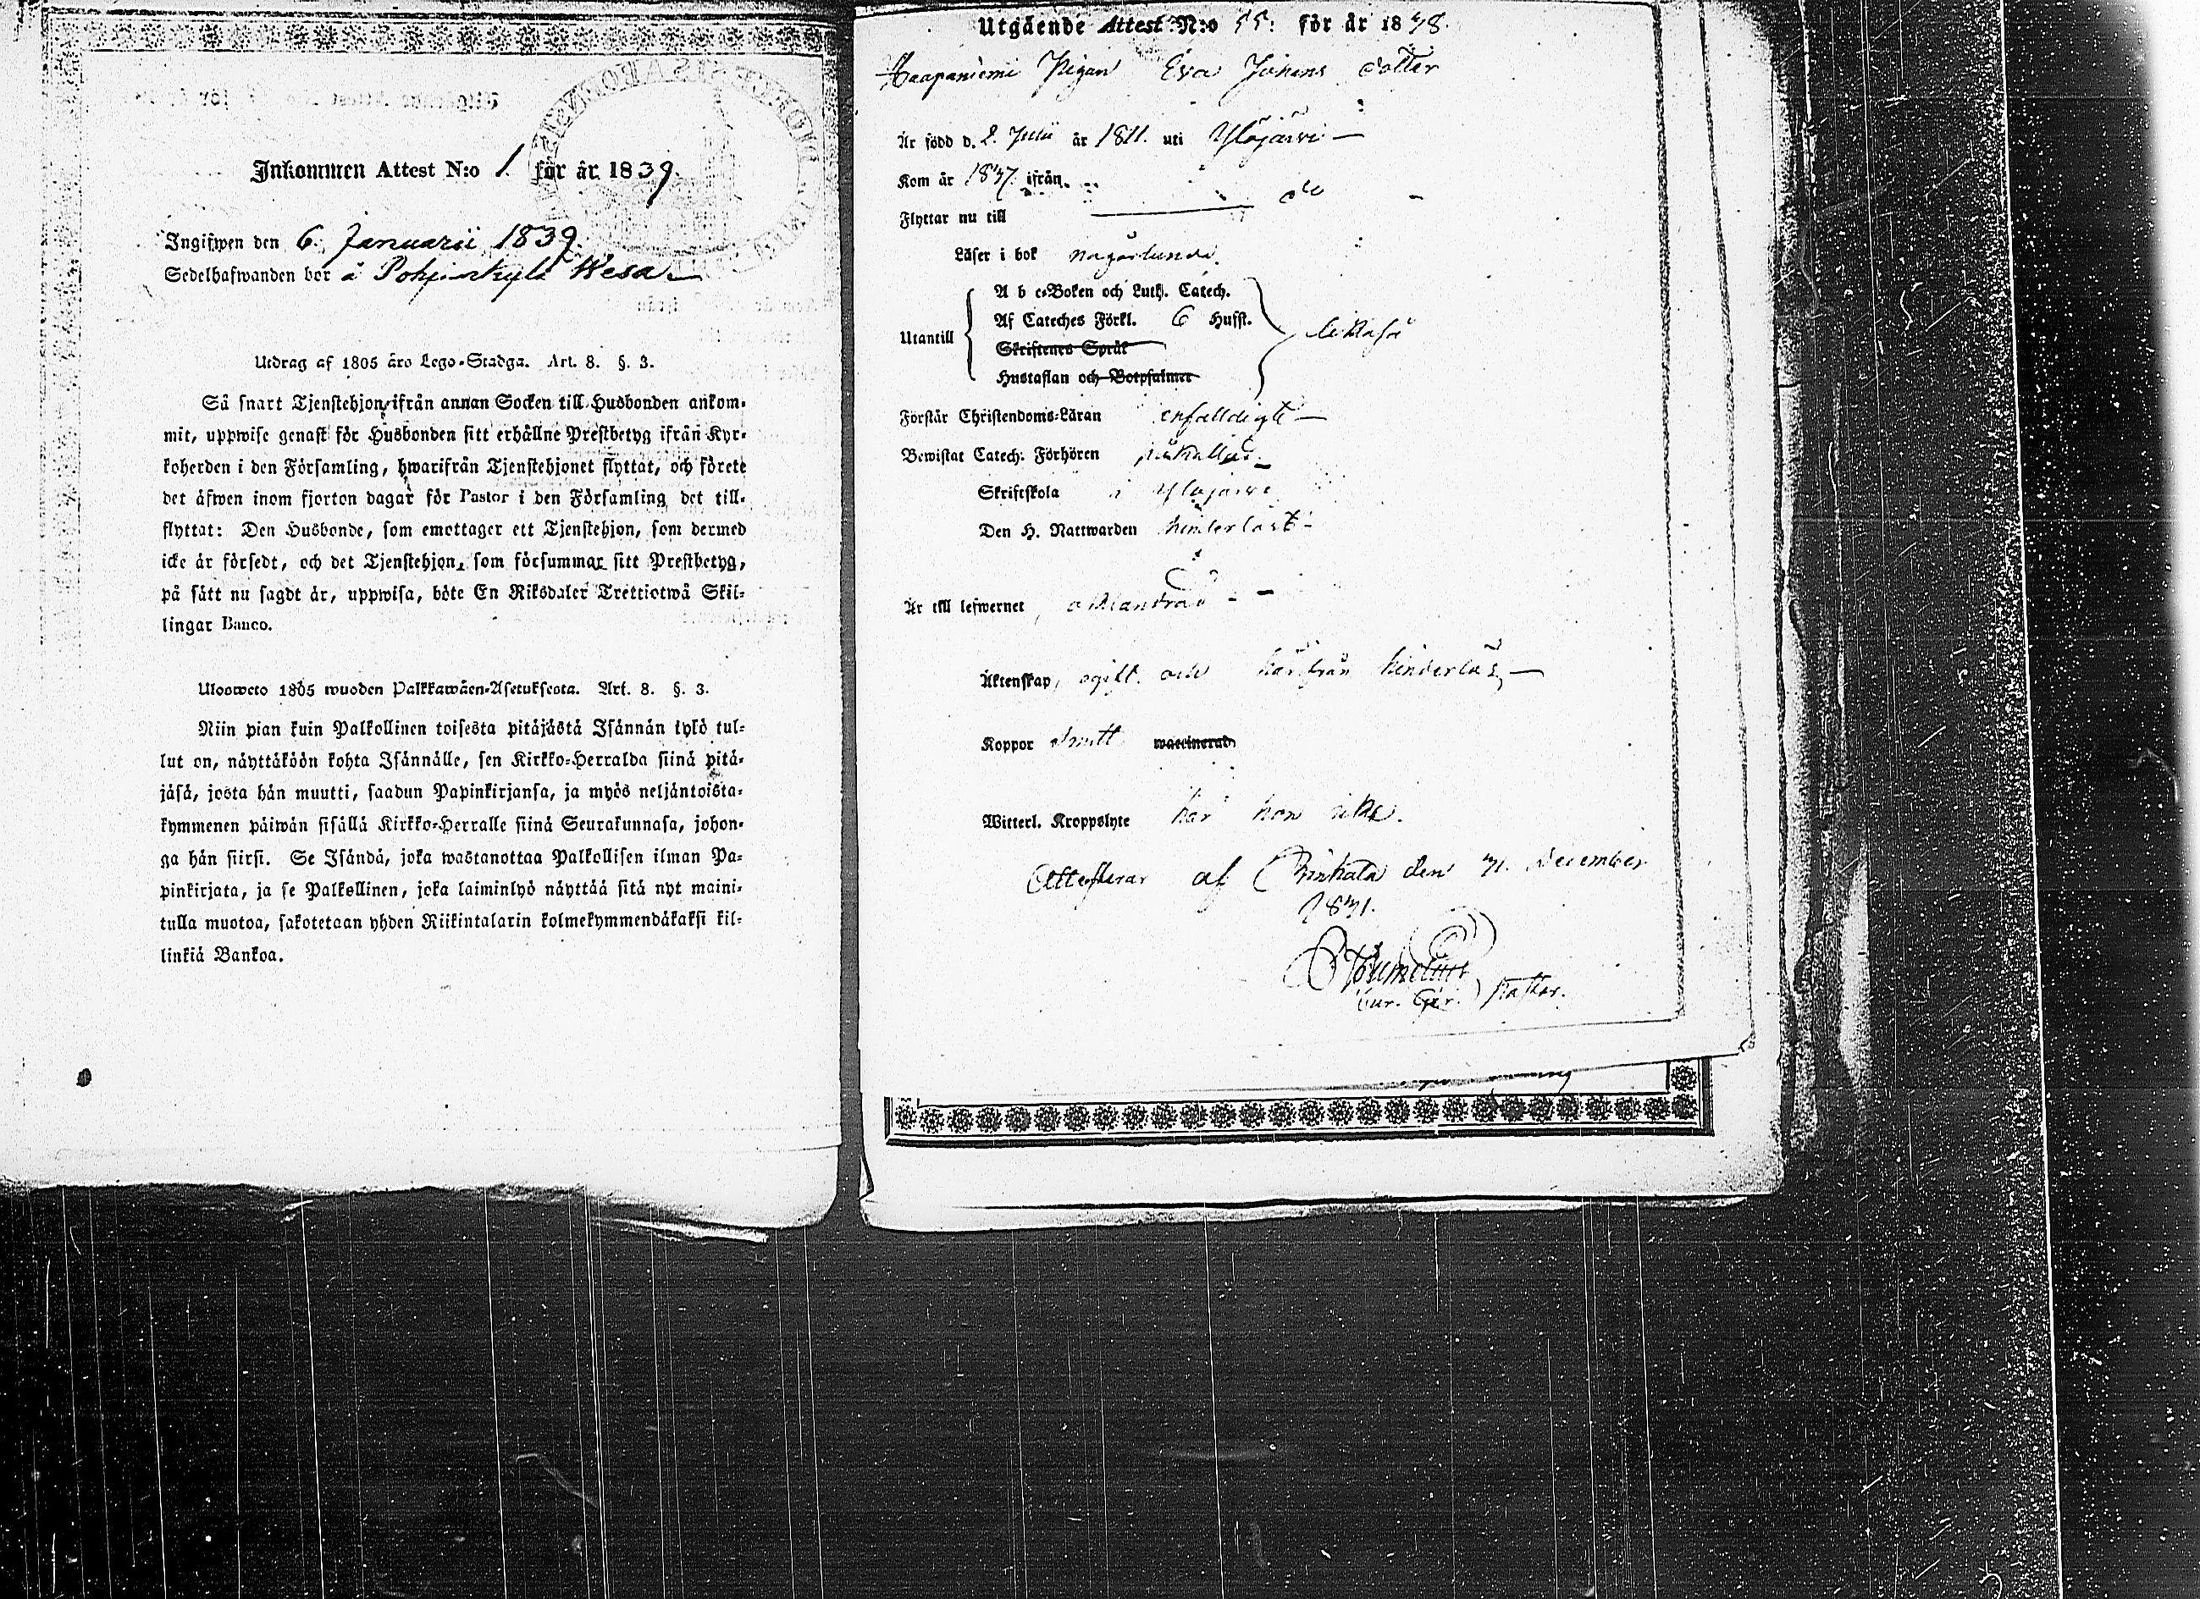 Inkommen Attest N:o 1. för år 1839.
Ingifwen den 6. Januarii 1839.
Sedelhafwanden bor å Pohjankylä Wesa
Utdrag af 1805 års Lego-Stadga. Art. 8. §. 3.
Så snart Tjenstehjon ifrån annan Socken till Husbonden ankom-
mit, uppwise genast för Husbonden sitt erhållne Prestbetyg ifrån Kyr-
koherden i den Församling, hwarifrån Tjenstehjonet flyttat, och förete
det äfwen inom fjorton dagar för Pastor i den Församling det till-
flyttat: Den Husbonde, som emottager ett Tjenstehjon, som dermed
icke är försedt, och det Tjenstehjon, som försummar sitt Prestbetyg,
på sätt nu sagdt är, uppwisa, böte En Riksdaler Trettiotwå Skil-
lingar Banco.
Ulosweto 1805 wuoden Palkkawäen-Asetuksesta. Art. 8. §. 3.
Niin pian kuin Palkollinen toisesta pitäjästä Isännän työ tul-
lut on, näyttäköön kohta Isännälle, sen Kirkko-Herralda siinä pitä-
jäsä, josta hän muutti, saadun Papinkirjansa, ja myös neljäntoista-
kymmenen päiwän sisällä Kirkko-Herralle siinä Seurakunnasa, johon-
ga hän siirsi. Se Isändä, joka wastanottaa Palkollisen ilman Pa-
pinkirjata, ja se Palkollinen, joka laiminlyö näyttää sitä nyt maini-
tulla muotoa, sakotetaan yhden Riikintalarin kolmekymmendäkaksi kil-
linkiä Bankoa.
Utgående Attest N:o 55. för år 1838.
Haapaniemi Pigan Eva Johans dotter
Är född d. 2. Julii år 1811. uti Ylöjärvi
Kom år 1837. ifrån
Flyttar nu till do
Läser i bok någorlunda.
Utantill
A b c-Boken och Luth. Catech.
Af Cateches Förkl. 6 Hufst.
Skriftenes Språk
Hustaflan och Botpsalmer
Förstår Christendoms-Läran enfalldigt
Bewistat Catech. Förhören
Skriftskola i Ylöjärvi
Den H. Nattwarden hinderlöst
Är till lefwernet oklandrad
Äktenskap, ogift och härifrån hinderlös,
Koppor haft waccinerad
Witterl. Kroppslyte har hon icke.
Attesterar af Birkala den 31. December
Cur. Gér. Pastor.